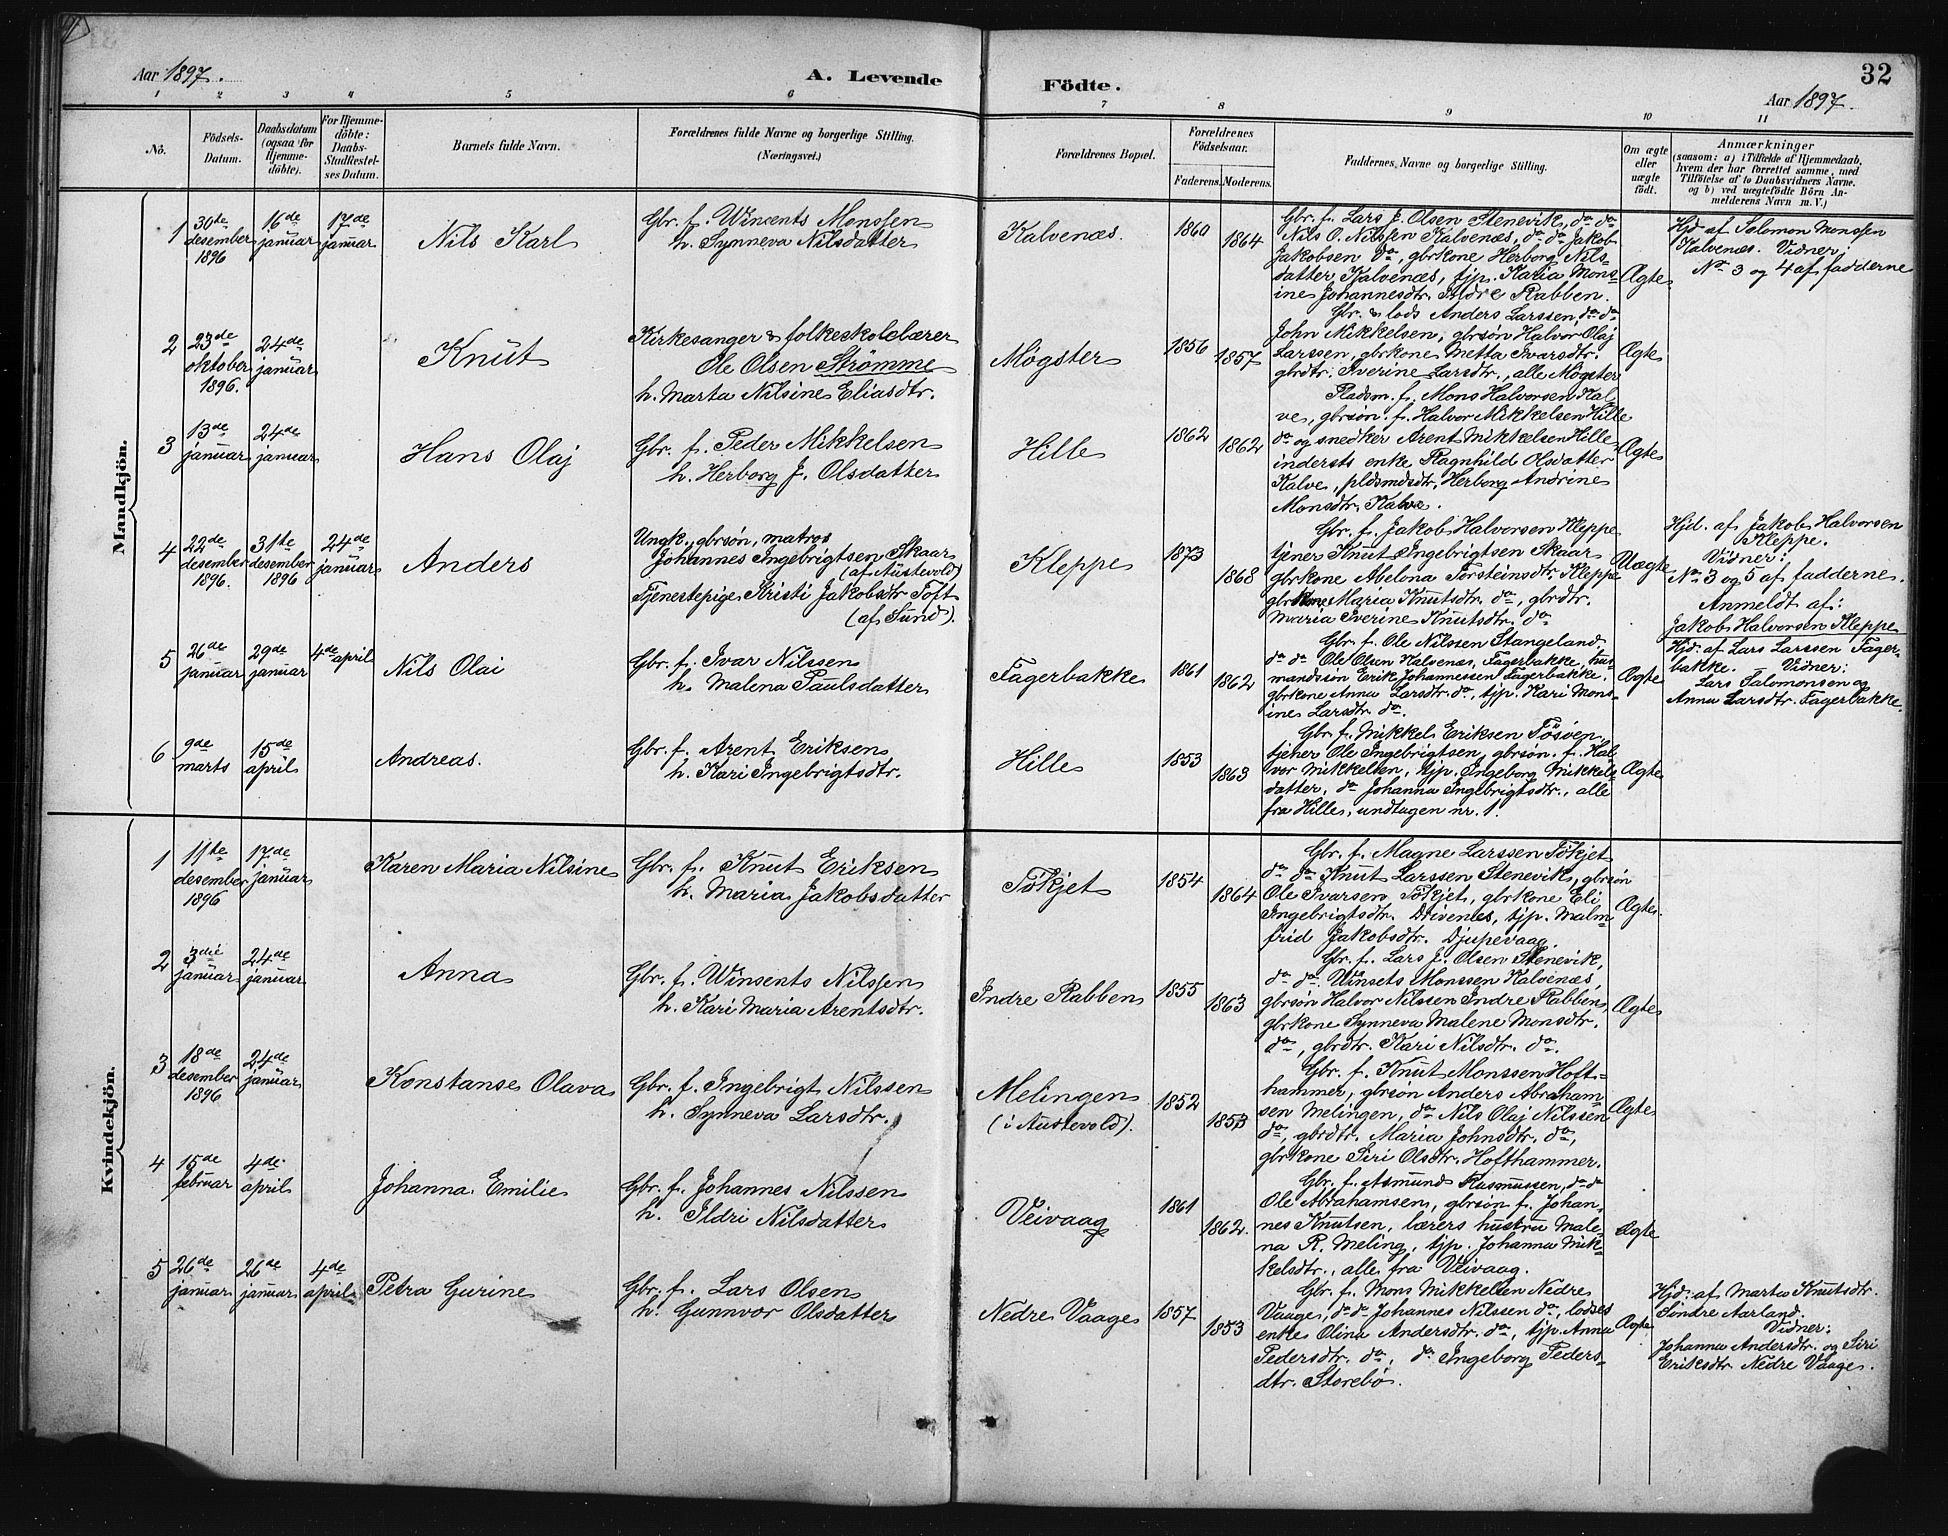 Aar 1897.
A. Levende
Födte.
32
Aar 1897.
1 2 3 4 5 6 7 8 9 10 11
No.
Födsels-
Datum.
Daabsdatum
(ogsaa for
Hjemme-
döbte).
For Hjemme-
döbte:
Daabs-
Stadfæstel-
ses Datum.
Barnets fulde Navn.
Forældrenes fulde Navne og borgerlige Stilling.
(Næringsvei.)
Forældrenes Bopæl.
Forældrenes
Födselsaar.
Faderens. Moderens.
Faddernes Navne og borgerlige Stilling.
Om ægte
eller
uægte
födt.
Anmærkninger
(saasom: a) i Tilfælde af Hjemmedaab,
hvem der har forrettet samme, med
Tilföielse af to Daabsvidners Navne.
og b) ved uægtefödte Börn An-
melderens Navn m. V.)
Mandkjön.
1
30te
desember
1896
16de
januar
17de
januar
Nils Karl
Gbr. f. Winsents Monssen
h. Synneva Nilsdatter
Kalvenæs.
1860
1864
Gbr. f. Lars J. Olsen Stenevik, do do
Nils O. Nilssen Kalvenæs, do do Jakob
Jakobsen do, gbrkone Herborg Nils-
datter Kalvenæs, tjp. Karia Mons-
ine Johannesdtr. Indre Rabben.
Ægte
Hjd af Salomon Monssen
Kalvenæs. Vidner:
No 3 og 4 af fadderne
2
23de
oktober
1896.
24de
januar
Knut
Kirkesanger & folkeskolelærer
Ole Olsen Strømme
h. Marta Nilsine Eliasdtr.
Møgster
1856
1857
Gbr. & lods Anders Larssen, do do
John Mikkelsen, gbrsøn Halvor Olaj
Larssen, gbrkone Metta Ivarsdtr.
gbrdtr. Iverine Larsdtr., alle Møgster
Ægte
3
13de
januar
24de
januar
Hans Olaj
Gbr. f. Peder Mikkelsen
h. Herborg J. Olsdatter
Hille
1862
1862
Pladsm. f. Mons Halvorsen Kal-
ve, gbrsøn. f. Halvor Mikkelsen Hille
do og snedker Arent Mikkelsen Hille
indersts enke Ragnhild Olsdatter
Kalve, pldsmdsdtr. Herborg Andrine
Monsdtr. Kalve.
Ægte
4
22de
desember
1896.
31te
desember
1896
24de
januar
Anders
Ungk., gbrsøn, matros
Johannes Ingebrigtsen Skaar
(af Austevold)
Tjenestepige Kristi Jakobsdtr Toft
(af Sund).
Kleppe
1873
1868
Gbr. f. Jakob Halvorsen Kleppe
tjener Knut Ingebrigtsen Skaar
gbrkone Abelona Torsteinsdtr. Kleppe
gbrkone Maria Knutsdtr. do, gbrdtr.
Maria Iverine Knutsdtr. do
Uægte
Hjd. af Jakob Halvorsen
Kleppe.
Vidner:
No. 3 og 5 af fadderne.
Anmeldt af:
Jakob Halvorsen Kleppe
5
26de
januar
29de
januar
4de april
Nils Olai
Gbr. f. Ivar Nilssen
h. Malena Paulsdatter
Fagerbakke
1861
1862
Gbr. f. Ole Nilssen Stangeland,
do do Ole Olsen Halvenæs, Fagerbakke, hus-
mandssøn Erik Johannessen Fagerbakke.
gbrkone Anna Larsdtr. do, tjp. Kari Mons-
ine Larsdtr. do.
Ægte
Hjd. af Lars Larssen Fager-
bakke. Vidner:
Lars Salomonsen og
Anna Larsdtr. Fagerbakke.
6
9de
marts
15de
april
Andreas.
Gbr. f. Arent Eriksen
h. Kari Ingebrigtsdtr.
Hille
1853
1863
Gbr. f. Mikkel Eriksen Tøsven,
tjener Ole Ingebrigtsen, gbrsøn. f. Hal-
vor Mikkelsen, tjp. Ingeborg Mikkels-
datter, do Johanna Ingebrigtsdtr., alle
fra Hille, undtagen nr. 1.
Ægte
Kvindekjön.
1
11te
desember
1896
17de
januar
Karen Maria Nilsine
Gbr. f. Knut Eriksen
h. Maria Jakobsdatter
Tökjet
1854
1864
Gbr. f. Magne Larssen Tökjet
do do Knut Larssen Stenevik, gbrsøn
Ole Ivarsen Tökjet, gbrkone Eli
Ingebrigtsdtr. Drivenes, tjp. Malm-
frid Jakobsdtr. Djupevaag.
Ægte.
2
3die
januar
24de
januar
Anna
Gbr. f. Winsents Nilssen
h. Kari Maria Arentsdtr.
Indre Rabben
1855
1863
Gbr. f. Lars J. Olsen Stenevik,
do do. Winsets Monssen Kalvenæs,
gbrsøn Halvor Nilssen Indre Rabben,
gbrkone Synneva Malene Monsdtr.
do, gbrdtr. Kari Nilsdtr. do.
Ægte
3
18de
desember
1896
24de
januar
Konstanse Olava
Gbr. f. Ingebrigt Nilssen
h. Synneva Larsdtr.
Melingen
(i Austevold).
1852
1853
Gbr. f. Knut Monssen Hoft-
hammer, gbrsøn Anders Abraham-
sen Melingen, do Nils Olaj Nilssen
do, gbrdtr. Maria Johnsdtr. do,
gbrkone Siri Olsdtr. Hofthammer.
Ægte
4
15de
februar
4de
april
Johanna Emilie
Gbr. f. Johannes Nilssen
h. Ildri Nilsdatter
Veivaag
1861
1862.
Gbr. f. Asmund Rasmussen, do do
Ole Abrahamsen, gbrsøn f. Johan-
nes Knutsen, lærers hustru Male-
na R. Meling, tjp. Johanna Mik-
kelsdtr., alle fra Veivaag.
Ægte
5
26de
januar
26de
januar
4de
april
Petra Gurine
Gbr. f. Lars Olsen
h. Gunnvor Olsdatter
Nedre Vaage
1857
1853
Gbr. f. Mons Mikkelsen Nedre
Vaage, do do Johannes Nilssen do, lodses
enke Olina Andersdtr. do, tjp. Anna
Pedersdtr. do, do Ingeborg Peders-
dtr. Storebø.
Ægte
Hjd. af Marta Knutsdtr.
Søndre Aarland.
Vidner:
Johanna Andersdtr. og Siri
Eriksdtr Nedre Vaage.